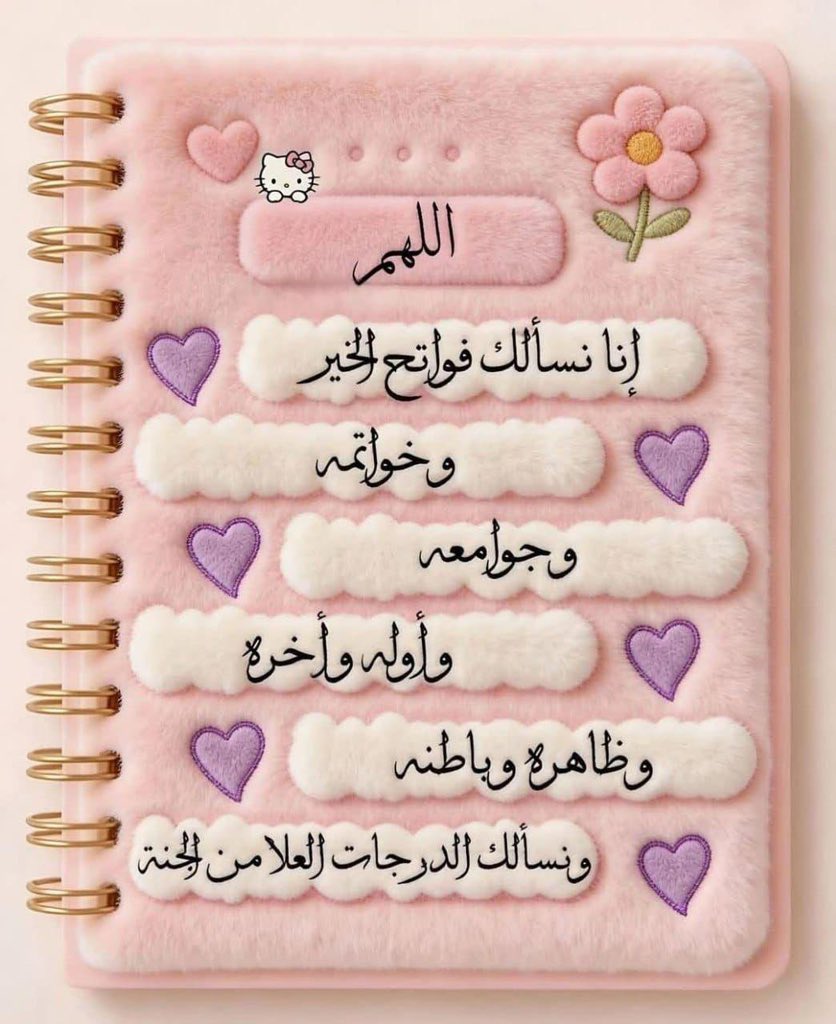 اللهم
إنا نسألك فواتح الخير
وخواتمه
وجوامعه
وأوله وأخره
وظاهره وباطنه
ونسألك الدرجات العلا من الجنة